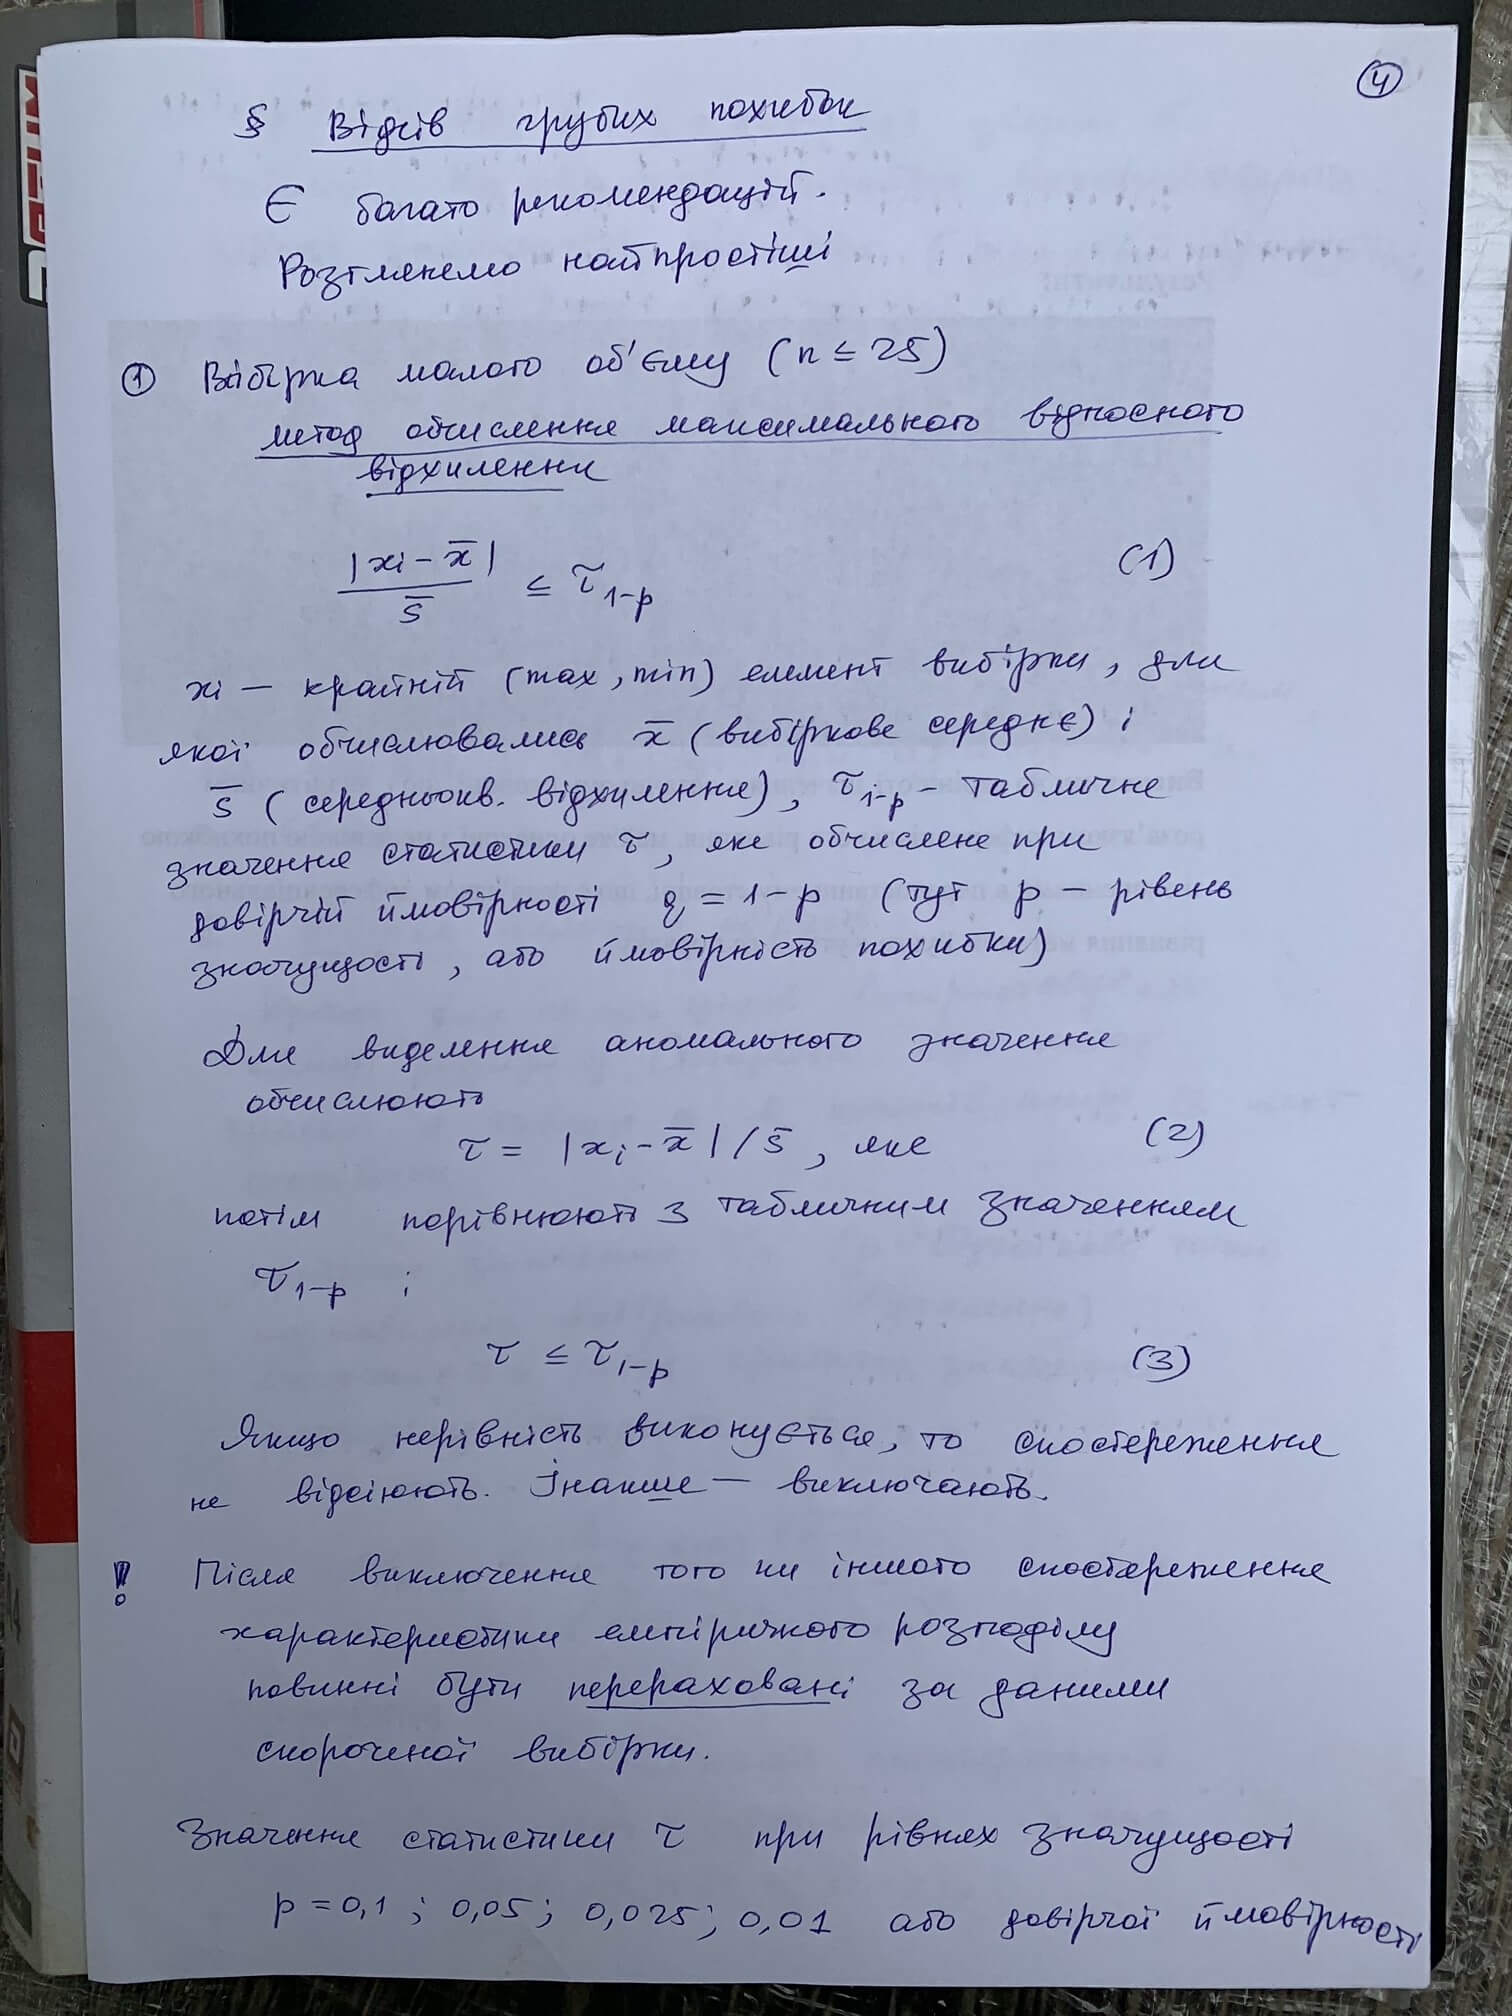 4
§ Відсів грубих похибок
Є багато рекомендацій.
Розглянемо найпростіші
① Вибірка малого об'єму (n ≤ 25)
метод обчислення максимального відносного
відхилення
|xi - x̄| / s̄ ≤ τ1-p (1)
xi — крайній (max, min) елемент вибірки, для
якої обчислювались x̄ (вибіркове середнє) і
s̄ (середньокв. відхилення), τ1-p - табличне
значення статистики τ, яке обчислене при
довірчій ймовірності q = 1-p (тут p — рівень
значущості, або ймовірність похибки)
Для виделення аномального значення
обчислюють
τ = |xi - x̄| / s̄, яке (2)
потім порівнюють з табличним значенням
τ1-p :
τ ≤ τ1-p (3)
Якщо нерівність виконується, то спостереження
не відсіюють. Інакше — виключають.
! Після виключення того чи іншого спостереження
характеристики емпіричного розподілу
повинні бути перераховані за даними
скороченої вибірки.
Значення статистики τ при рівнях значущості
p = 0,1 ; 0,05; 0,025; 0,01 або довірчої ймовірності